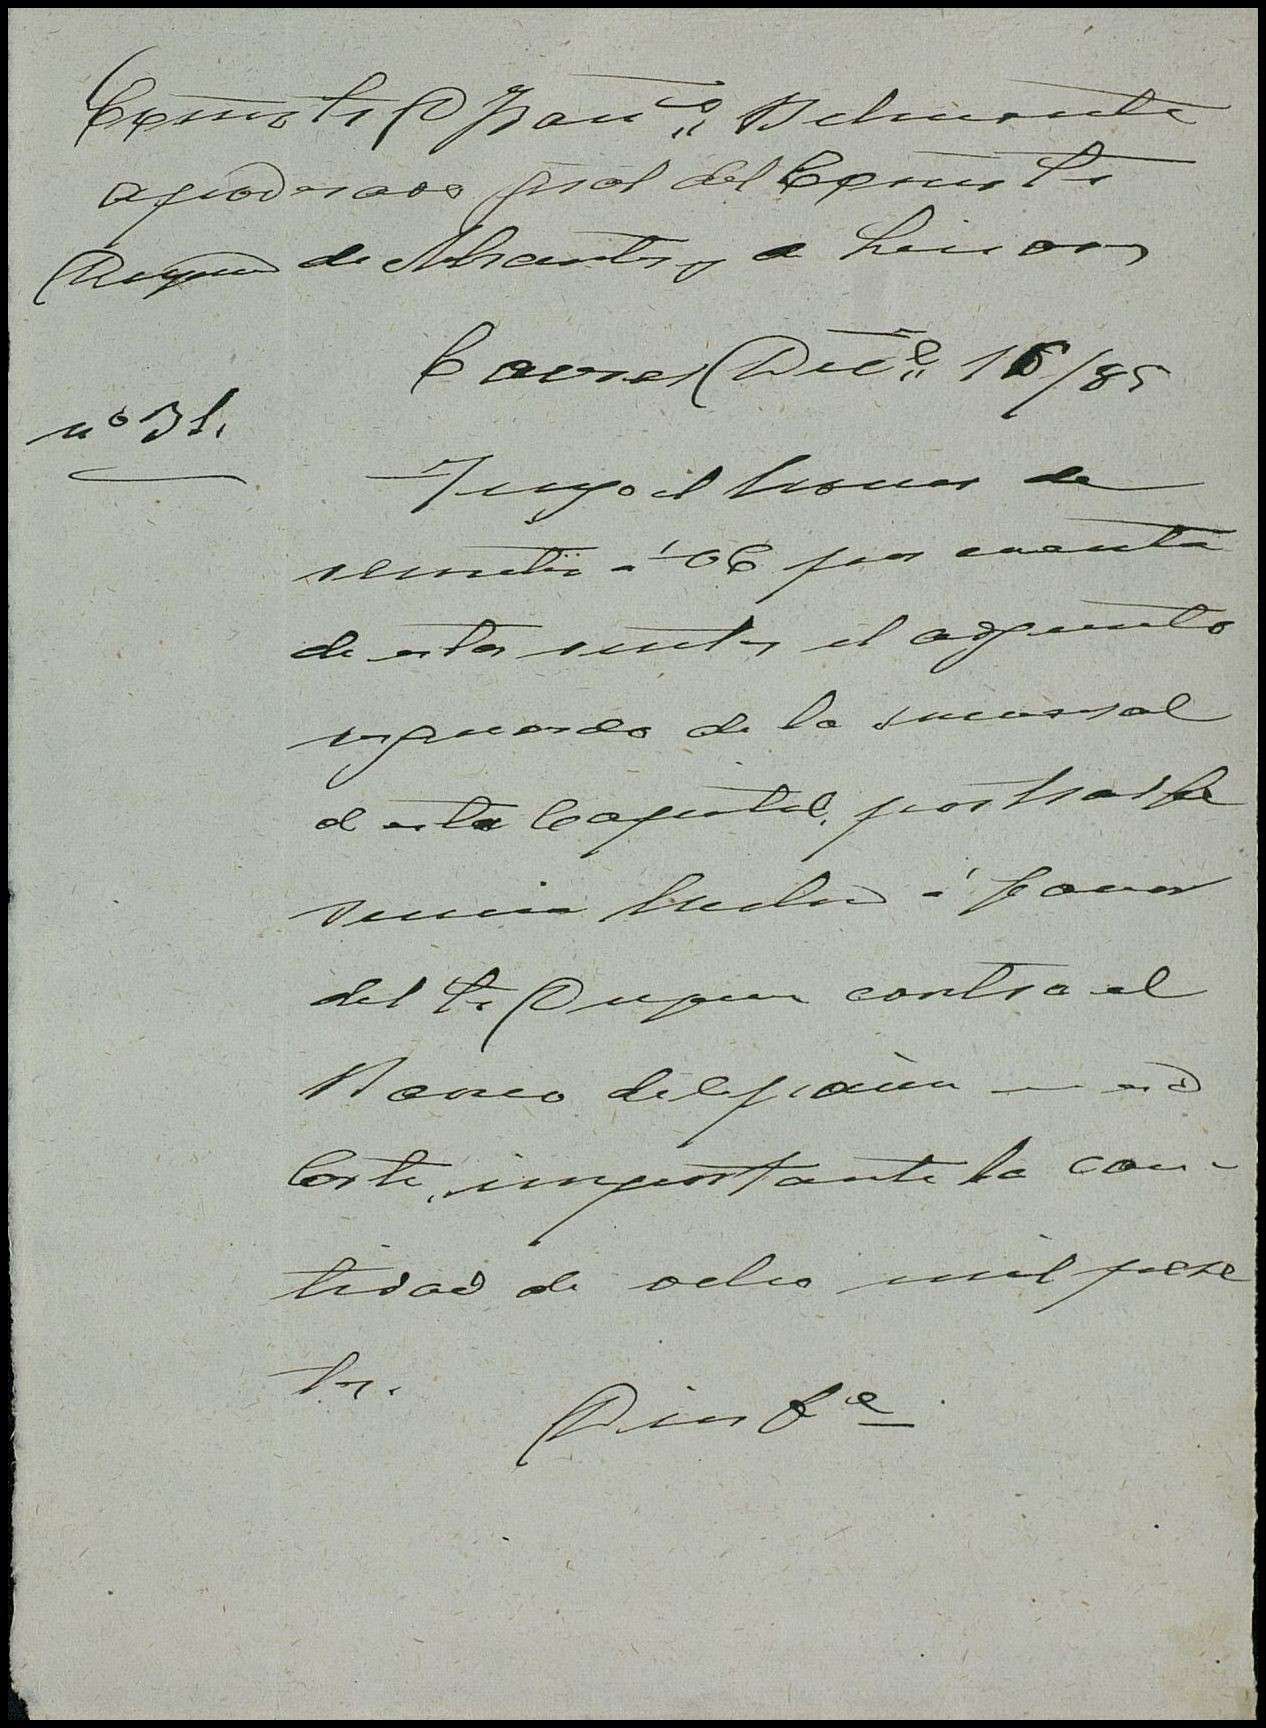 Exmo Sr D Franco Belmonte
apoderado gral del Exmo Sr
Duque de Abrantes y a Linares
Caceres Dice 16/85
nº 31.
Tengo el honor de
remitir á VE por cuenta
de estas rentas el adjunto
resguardo de la sucursal
d esta Capital, por trasfe
rencia hecha á favor
del Sr Duque contra el
Banco de España en esa
Corte, importante la can-
tidad de ocho mil pese
tas.
Dios &e